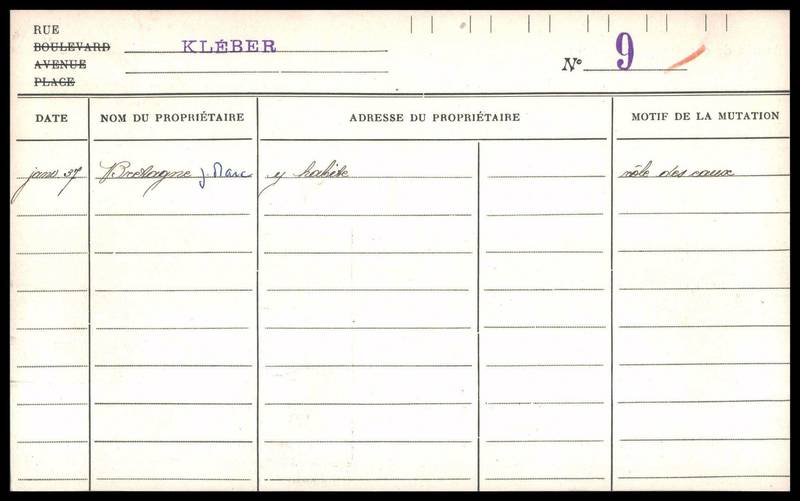 RUE
BOULEVARD
AVENUE
PLACE
KLÉBER
N° 9
DATE
NOM DU PROPRIÉTAIRE
ADRESSE DU PROPRIÉTAIRE
MOTIF DE LA MUTATION
janv. 37 Bretagne J. Marc y habite rôle des eaux